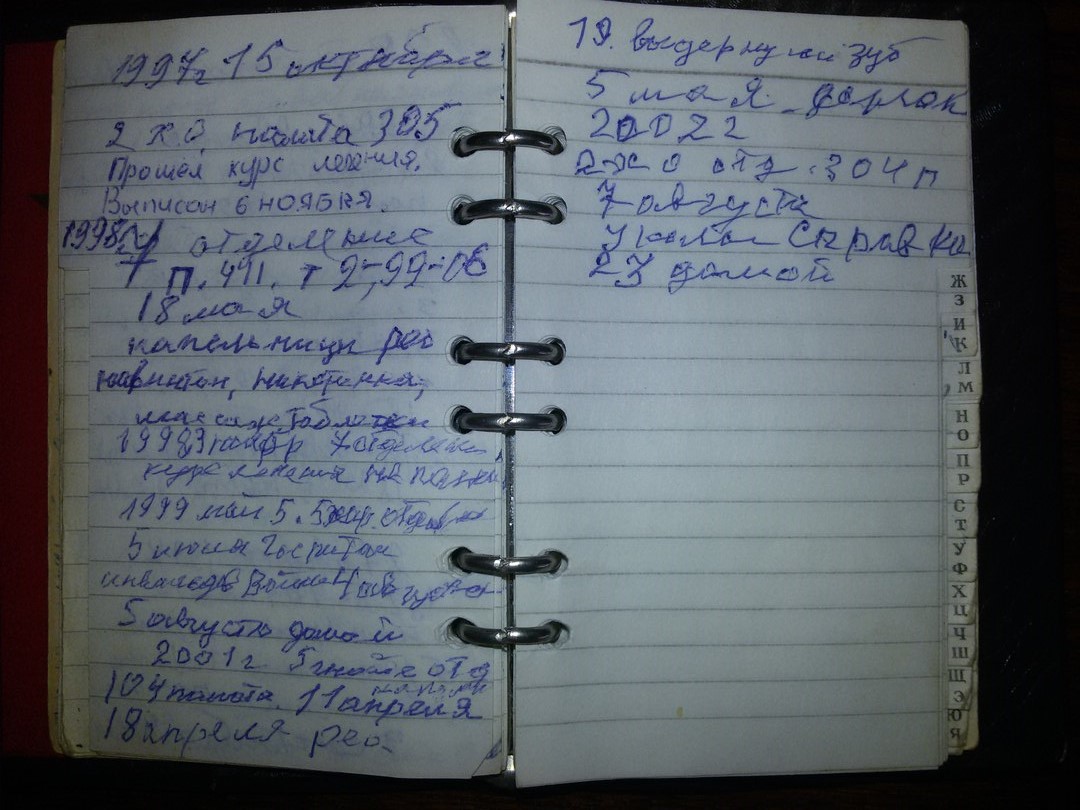 1997г 15 октября
2 х.о. палата 305
Прошел курс лечения.
Выписан 6 НОЯБРЯ.
1998г 7 отделение
П. 411. т 2-99-06
18 мая
капельницы рео
кавинтон, никотинка,
массаж, таблетки
1998 7 отделен
курс лечения
1999 май 5. 5 хир. отдел
5 июля Госпиталь
инвалидов Войны 4
5 августа домой
2001г 5 отд
104 палата. 11 апреля
18 апреля рео
19. выдернули зуб
5 мая
2002г
2 х о отд. 304 п
7 августа
уколы
23 домой
Ж
З
И
К
Л
М
Н
О
П
Р
С
Т
У
Ф
Х
Ц
Ч
Ш
Щ
Э
Ю
Я